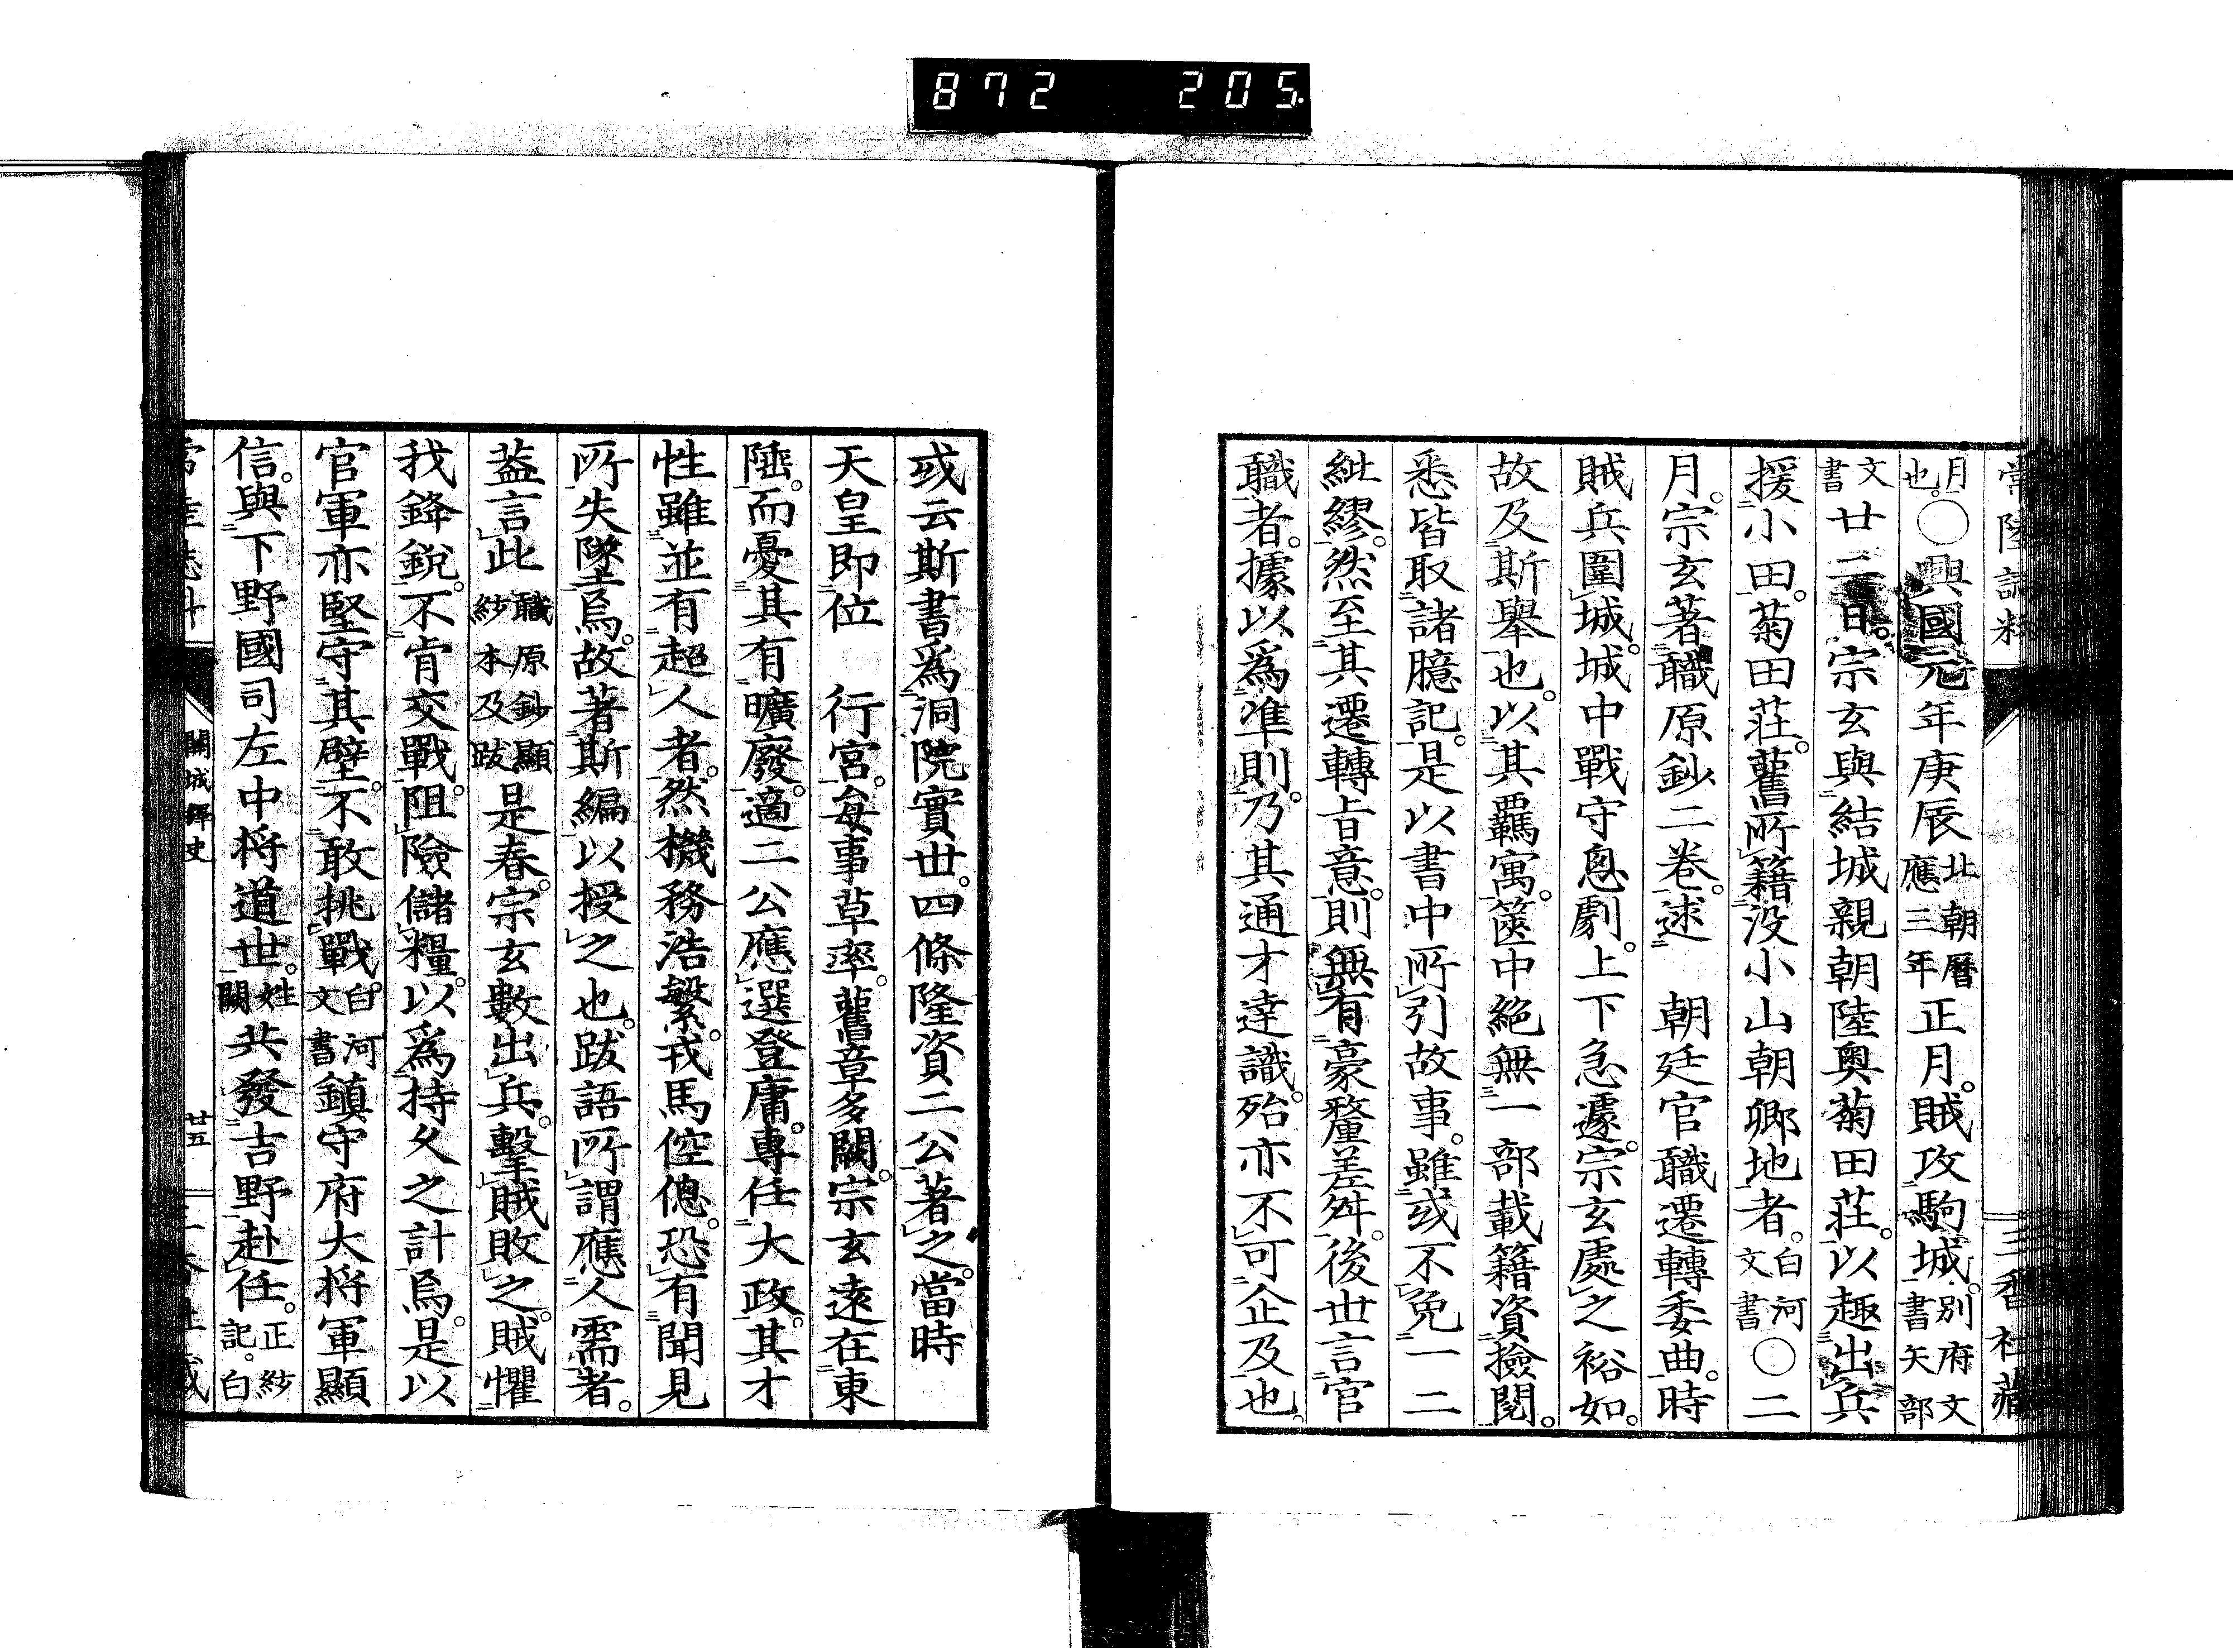 872 205
常陸誌料 三香社藏
月也。〇興國元年庚辰北朝曆應三年正月。賊攻駒城。別府文書矢部
文書廿二日。宗玄與結城親朝陸奧菊田莊。以趣出兵
援小田。菊田莊。舊所籍沒小山朝鄉地者。白河文書〇二
月。宗玄著職原鈔二卷。述 朝廷官職遷轉委曲。時
賊兵圍城。城中戰守悤劇。上下急遽。宗玄處之裕如。
故及斯舉也。以其羈寓。篋中絕無一部載籍資撿閱。
悉皆取諸臆記。是以書中所引故事。雖或不免一二
紕繆。然至其遷轉旨意。則無有豪釐差舛。後世言官
職者。據以爲準則。乃其通才達識。殆亦不可企及也。
或云斯書爲洞院實世。四條隆資二公著之。當時
天皇即位 行宮。每事草率。舊章多闕。宗玄遠在東
陲。而憂其有曠廢。適二公應選登庸。專任大政。其才
性雖並有超人者。然機務浩繁。戎馬倥傯。恐有聞見
所失墜焉。故著斯編以授之也。跋語所謂應人需者。
蓋言此職原鈔顯紗本及跋是春。宗玄數出兵。擊賊敗之。賊懼
我鋒銳。不肯交戰。阻險儲糧。以爲持久之計焉。是以
官軍亦堅守其壁。不敢挑戰。白河文書鎮守府大將軍顯
信。與下野國司左中將道世。姓闕共發吉野赴任。正紗記。白
關城繹史 廿五